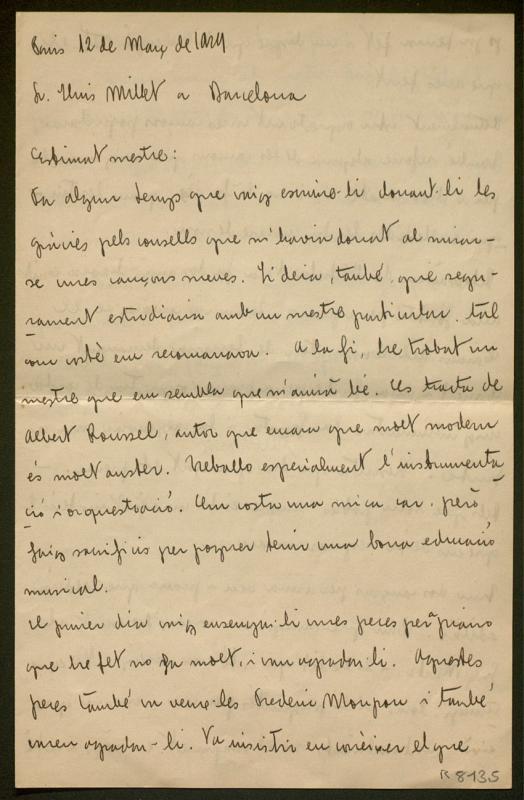 París 12 de Març de 1929
Sr. Lluis Millet a Barcelona
Estimat mestre:
Fa algun temps que vaig escriure-li donant-li les
gràcies pels consells que m'havia donat al mirar-
se unes cançons meves. Li deia, també, que segu-
rament estudiaria amb un mestre particular, tal
com vostè em recomanava. A la fi, he trobat un
mestre que em sembla que m'anirà bé. Es tracta de
Albert Roussel, autor que encara que molt modern
és molt auster. Treballo especialment l'instrumenta
ció i orquestració. Em costa una mica car, però
faig sacrificis per poguer tenir una bona educació
musical.
El primer dia vaig ensenyar-li unes peces per a piano
que he fet no fa molt, i van agradar-li. Aquestes
peces també va veure-les Frederic Mompou i també
varen agradar-li. Va insistir en conèixer el que
R 8135